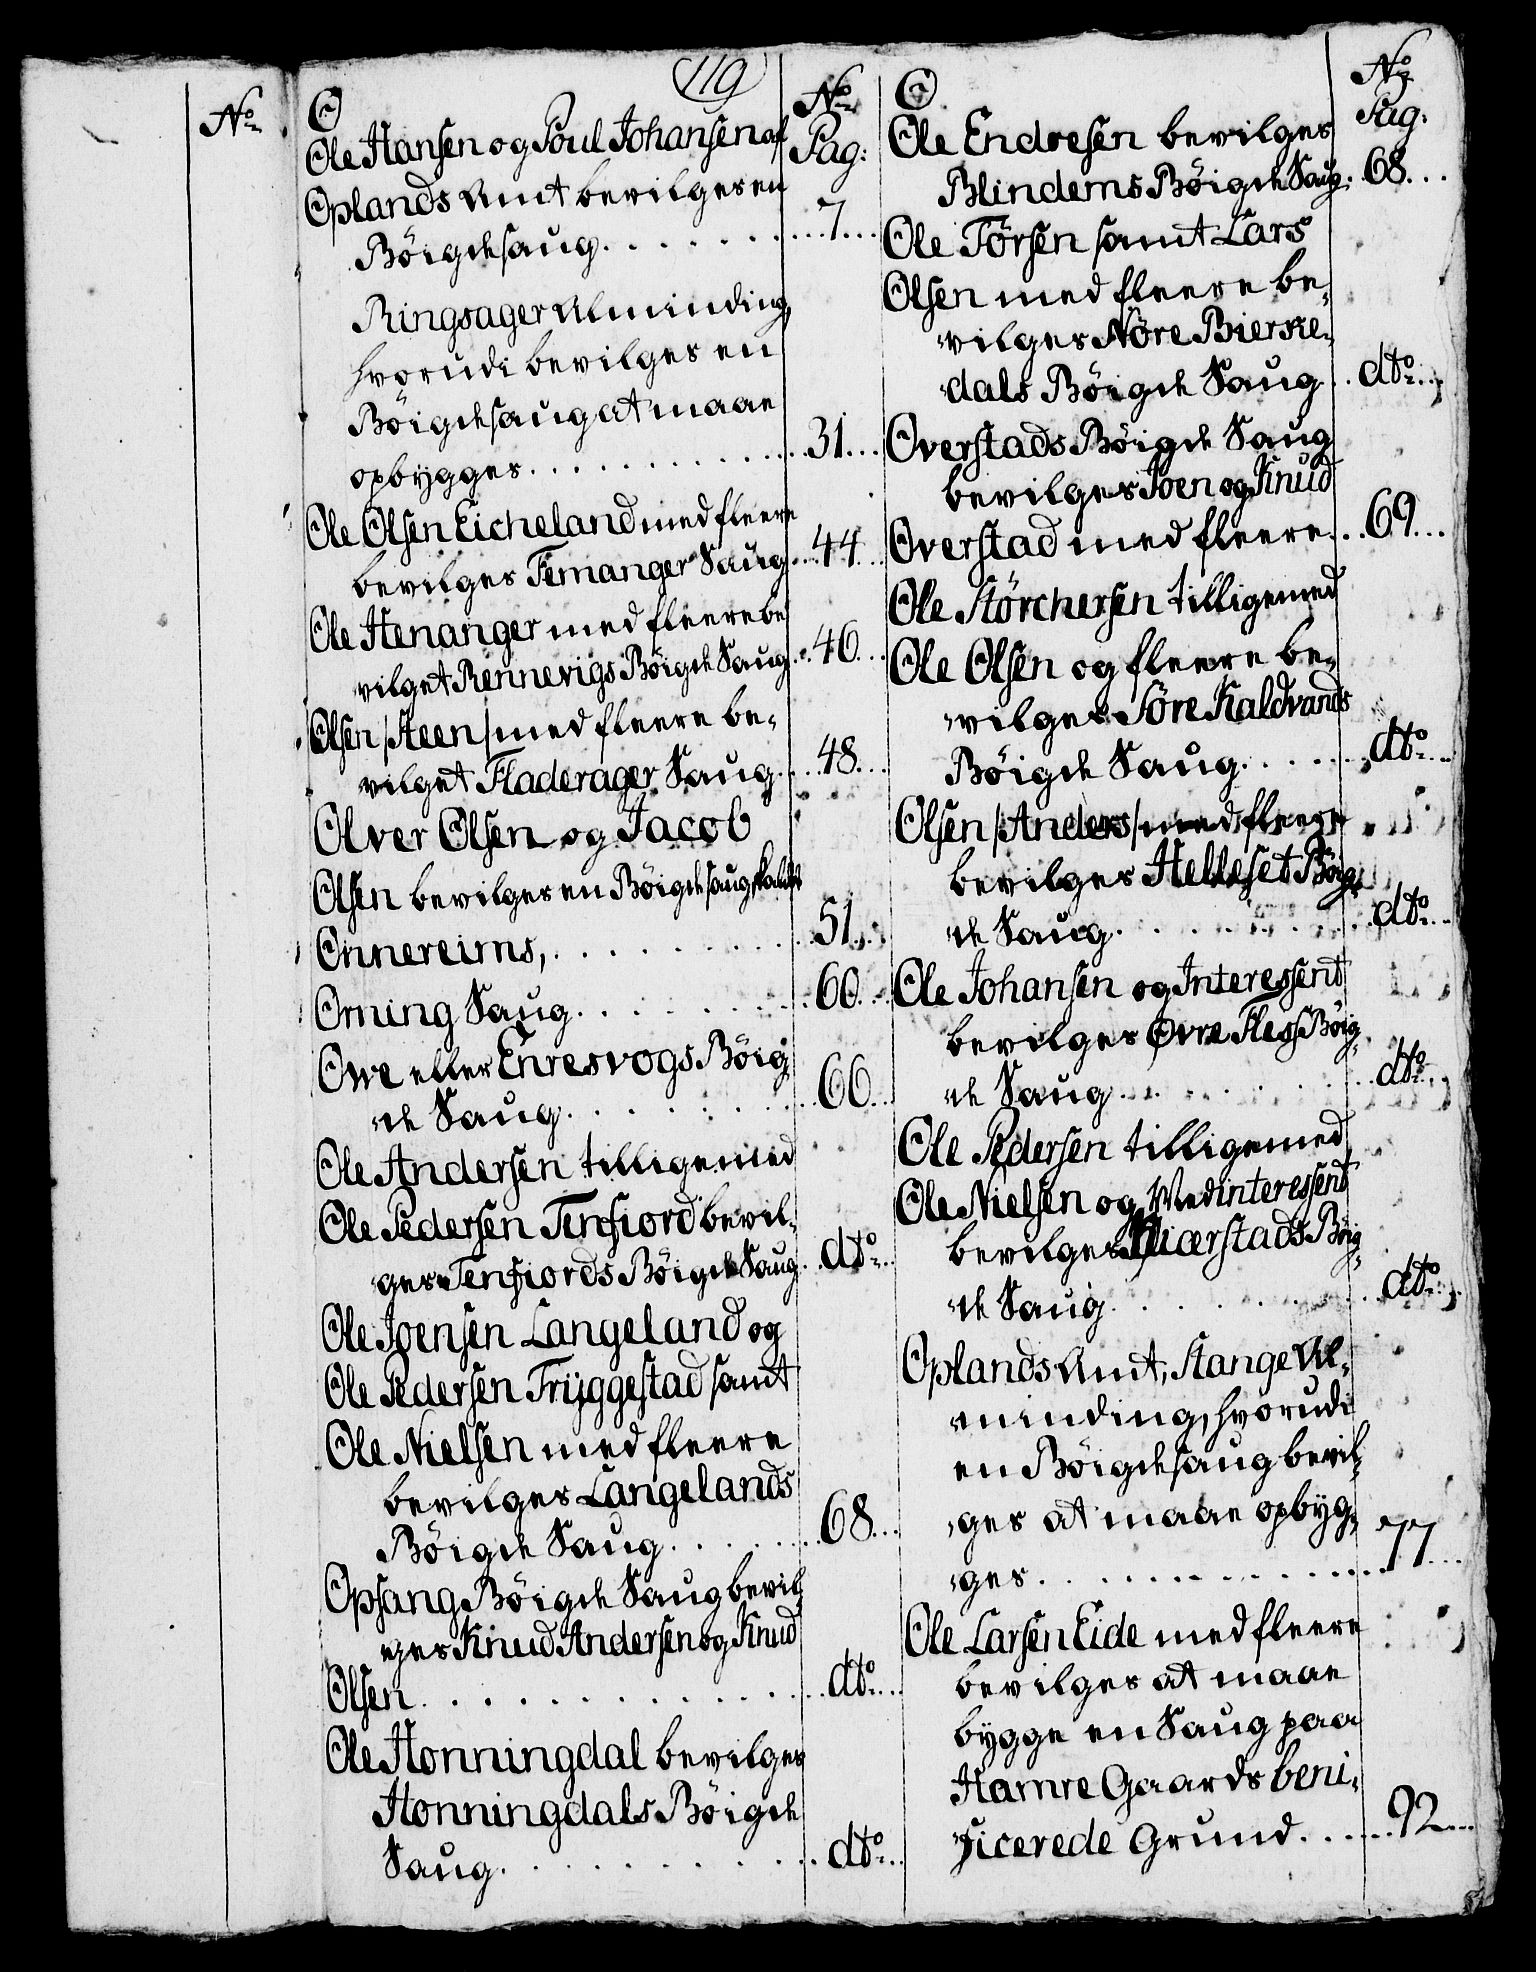 119
No
O
No
Pag:
Ole Hansen og Poul Johansen af
Oplands Amt bevilges en
Böigdesaug . . . . . . . . 7 . . .
Ringsager Alminding,
hvorudi bevilges en
Böigdesaug at maae
opbygges . . . . . . . . . . . 31 . . .
Ole Olsen Eicheland med fleere
bevilges Femanger Saug . . 44 . . .
Ole Henanger med fleere be
vilget Rennevigs Böigde Saug . . 46 . . .
Olsen /Steen/ med fleere be-
vilget Fladerager Saug . . . 48 . . .
Olver Olsen og Jacob
Olsen bevilges en Böigdesaug, kaldet
Onnereims, . . . . . . . . . . 51 . . .
Orning Saug . . . . . . . . . 60 . . .
Owe eller Enresvogs Böig
de Saug . . . . . . . . . . 66 . . .
Ole Andersen tilligemed
Ole Pedersen Tenfiord bevil-
ges Tenfiords Böigde Saug . . dto . .
Ole Joensen Langeland og
Ole Pedersen Tryggestad samt
Ole Nielsen med fleere
bevilges Langelands
Böigde Saug . . . . . . . . 68 . . .
Opsang Böigde Saug bevil-
ges Knud Andersen og Knud
Olsen . . . . . . . . . . . . . . dto . . .
Ole Honningdal bevilges
Honningdals Böigde
Saug . . . . . . . . . . . . . dto . .
O
No
Pag:
Ole Endresen bevilges
Blindems Böigde Saug . . 68 . . .
Ole Törsen samt Lars
Olsen med fleere be-
vilges Nöre Bierke-
dals Böigde Saug . . dto . .
Overstads Böigde Saug
bevilges Joen og Knud
Overstad med fleere . . . 69 . . .
Ole Störchersen tilligemed
Ole Olsen og fleere be-
vilges Söre Kaldvands
Böigde Saug . . . . . . . dto . . .
Olsen /Anders/ med fleere
bevilges Helleset Böig-
de Saug . . . . . . . . . . dto . . .
Ole Johansen og Interessent
bevilges Øvre Fless Böig-
de Saug . . . . . . . . . . dto . .
Ole Pedersen tilligemed
Ole Nielsen og Medinteressent
bevilges Biærstads Böig-
de Saug . . . . . . . . . . dto . .
Oplands Amt, Stange Al-
minding, hvorudi
en Böigdesaug bevil-
ges at maae opbyg-
ges . . . . . . . . . . . . . . 77 . . .
Ole Larsen Eide med fleere
bevilges at maae
bygge en Saug paa
Hamre Gaards beni-
ficerede Grund . . . . . 92 . . .